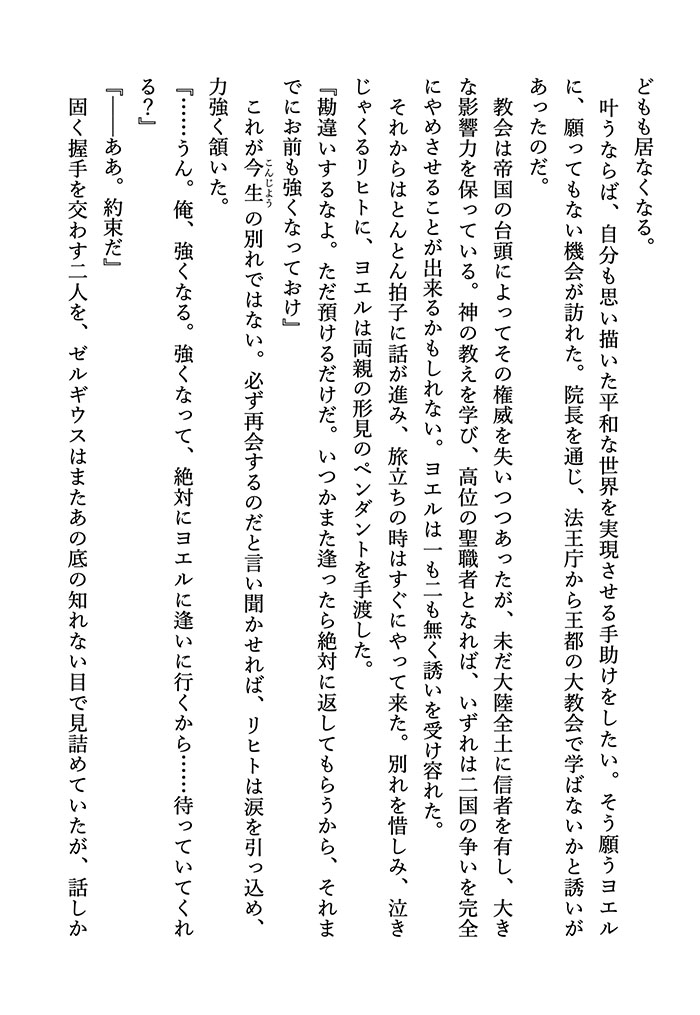 どもも居なくなる。
　叶うならば、自分も思い描いた平和な世界を実現させる手助けをしたい。そう願うヨエル
に、願ってもない機会が訪れた。院長を通じ、法王庁から王都の大教会で学ばないかと誘いが
あったのだ。
　教会は帝国の台頭によってその権威を失いつつあったが、未だ大陸全土に信者を有し、大き
な影響力を保っている。神の教えを学び、高位の聖職者となれば、いずれは二国の争いを完全
にやめさせることが出来るかもしれない。ヨエルは一も二も無く誘いを受け容れた。
　それからはとんとん拍子に話が進み、旅立ちの時はすぐにやって来た。別れを惜しみ、泣き
じゃくるリヒトに、ヨエルは両親の形見のペンダントを手渡した。
『勘違いするなよ。ただ預けるだけだ。いつかまた逢ったら絶対に返してもらうから、それま
でにお前も強くなっておけ』
　これが今生こんじようの別れではない。必ず再会するのだと言い聞かせれば、リヒトは涙を引っ込め、
力強く頷いた。
『……うん。俺、強くなる。強くなって、絶対にヨエルに逢いに行くから……待っていてくれ
る？』
『――ああ。約束だ』
　固く握手を交わす二人を、ゼルギウスはまたあの底の知れない目で見詰めていたが、話しか